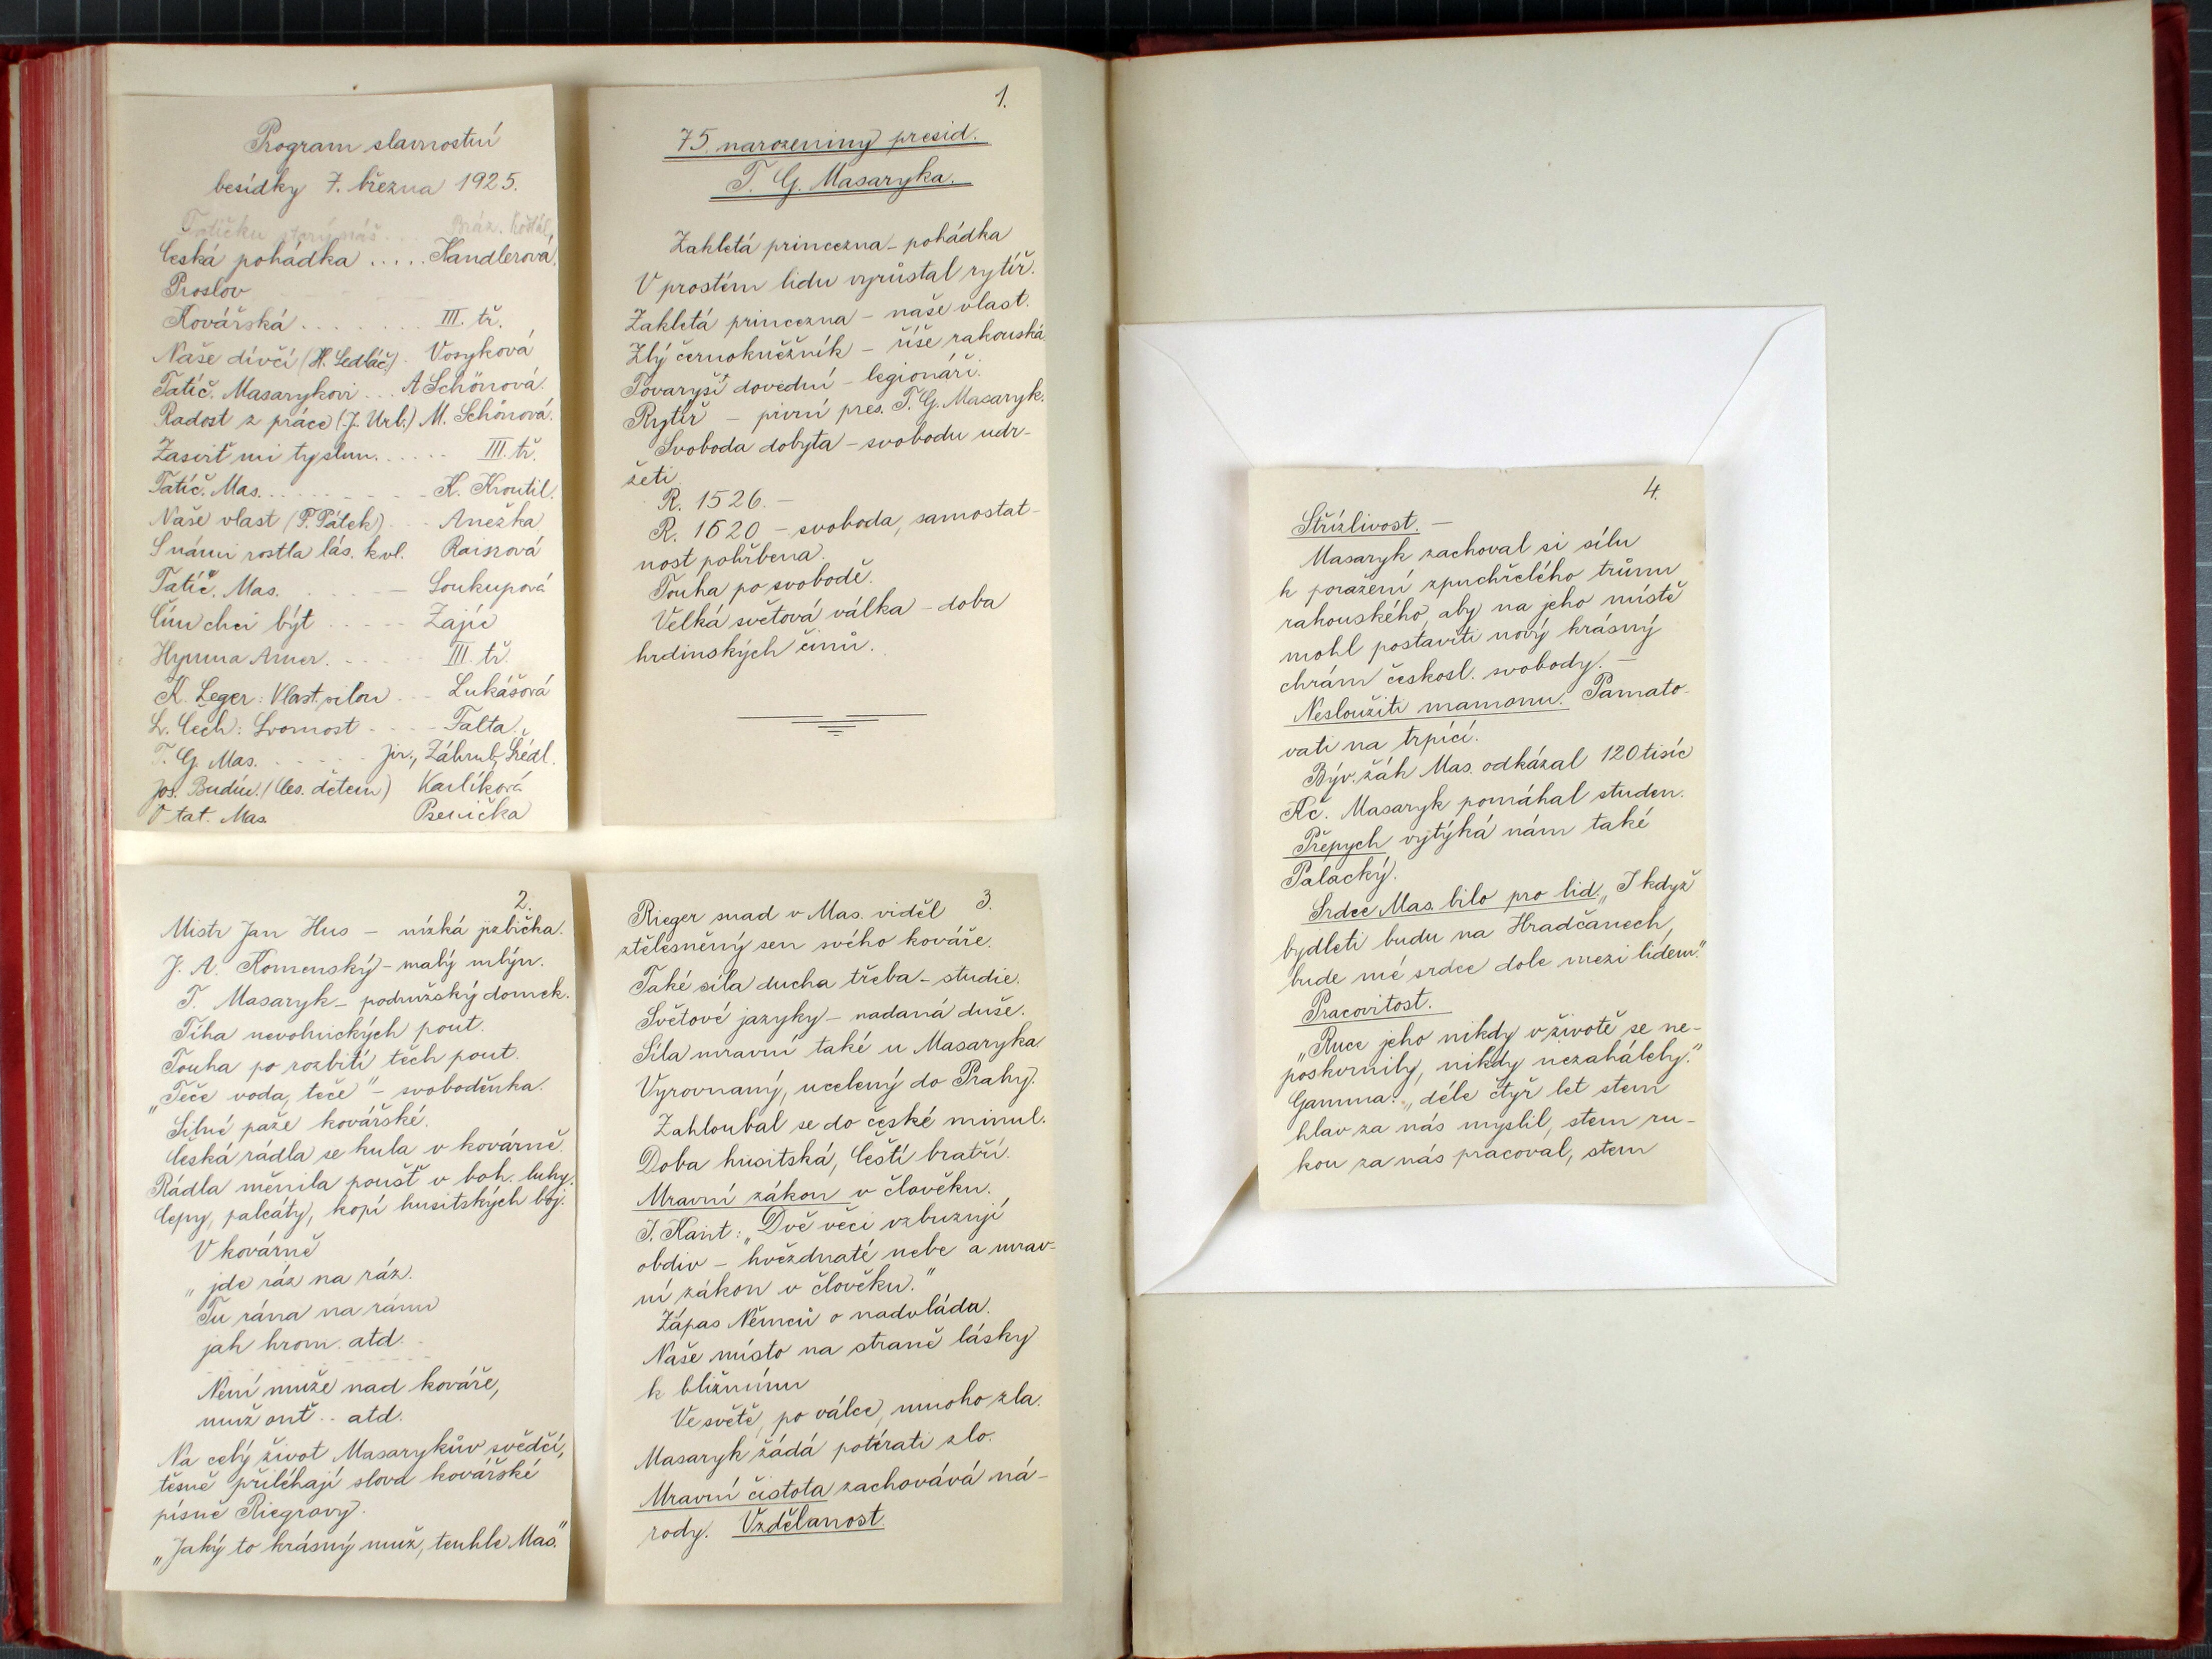 Program slavnostní
besídky 7. března 1925.
Tatíčku starý náš... Bráz. Košťál,
Česká pohádka ..... Kandlerová.
Proslov
Kovářská ....... III. tř.
Naše dívčí (H. Sedláč.) . Vosyková
Tatíč. Masarykovi ... A Schönová.
Radost z práce (J. Urb.) M. Schönová.
Zasviť mi ty slun. ..... III. tř.
Tatíč. Mas. ......... K. Kroutil.
Naše vlast (F. Pátek) ... Anežka
S námi rostla lás. k vl. Raisová
Tatíč. Mas. ..... Soukupová
Čím chci být ..... Zajíc
Hymna Amer. ..... III. tř.
K. Leger: Vlast. silou ... Lukášová
S. Čech: Svornost .... Falta.
T. G. Mas. ...... Jir., Záhrub, Šédl.
Jos. Budín. (Čes. dětem) Karlíková
O tat. Mas. Psenička
1.
75. narozeniny presid.
T. G. Masaryka.
Zakletá princezna – pohádka
V prostém lidu vyrůstal rytíř.
Zakletá princezna – naše vlast.
Zlý černokněžník – říše rakouská.
Tovaryši dovední – legionáři.
Rytíř – první pres. T. G. Masaryk.
Svoboda dobyta – svobodu udr-
žeti.
R. 1526. –
R. 1620 – svoboda, samostat-
nost pohřbena.
Touha po svobodě.
Velká světová válka – doba
hrdinských činů.
2.
Mistr Jan Hus – nízká jizbička.
J. A. Komenský – malý mlýn.
T. Masaryk – podružský domek.
Tíha nevolnických pout.
Touha po rozbití těch pout.
„Teče voda, teče" – svoboděnka.
Silné paže kovářské.
Česká rádla se kula v kovárně.
Rádla měnila poušť v boh. luhy.
Cepy, palcáty, kopí husitských boj.
V kovárně
„jde ráz na ráz.
Tu rána na ránu
jak hrom. atd.
Není muže nad kováře,
muž onť .. atd.
Na celý život Masarykův svědčí,
těsně přiléhají slova kovářské
písně Riegrovy.
„Jaký to krásný muž, tenhle Mas."
3.
Rieger snad v Mas. viděl
ztělesněný sen svého kováře.
Také síla ducha třeba – studie.
Světové jazyky – nadaná duše.
Síla mravní také u Masaryka.
Vyrovnaný, ucelený do Prahy.
Zahloubal se do české minul.
Doba husitská, Čeští bratří.
Mravní zákon v člověku.
I. Kant: „Dvě věci vzbuzují
obdiv – hvězdnaté nebe a mrav-
ní zákon v člověku."
Zápas Němců o nadvládu.
Naše místo na straně lásky
k bližnímu
Ve světě, po válce, mnoho zla.
Masaryk žádá potírati zlo.
Mravní čistota zachovává ná-
rody. Vzdělanost.
4.
Střízlivost. –
Masaryk zachoval si sílu
k poražení zpuchřelého trůnu
rakouského, aby na jeho místě
mohl postaviti nový krásný
chrám českosl. svobody. –
Nesloužiti mamonu. Pamato-
vati na trpící.
Býv. žák Mas. odkázal 120 tisíc
Kč. Masaryk pomáhal studen.
Přepych vytýká nám také
Palacký.
Srdce Mas. bilo pro lid. „I když
bydleti budu na Hradčanech,
bude mé srdce dole mezi lidem."
Pracovitost.
„Ruce jeho nikdy v životě se ne-
poskvrnily, nikdy nezahálely."
Gamma: „déle čtyř let stem
hlav za nás myslil, stem ru-
kou za nás pracoval, stem